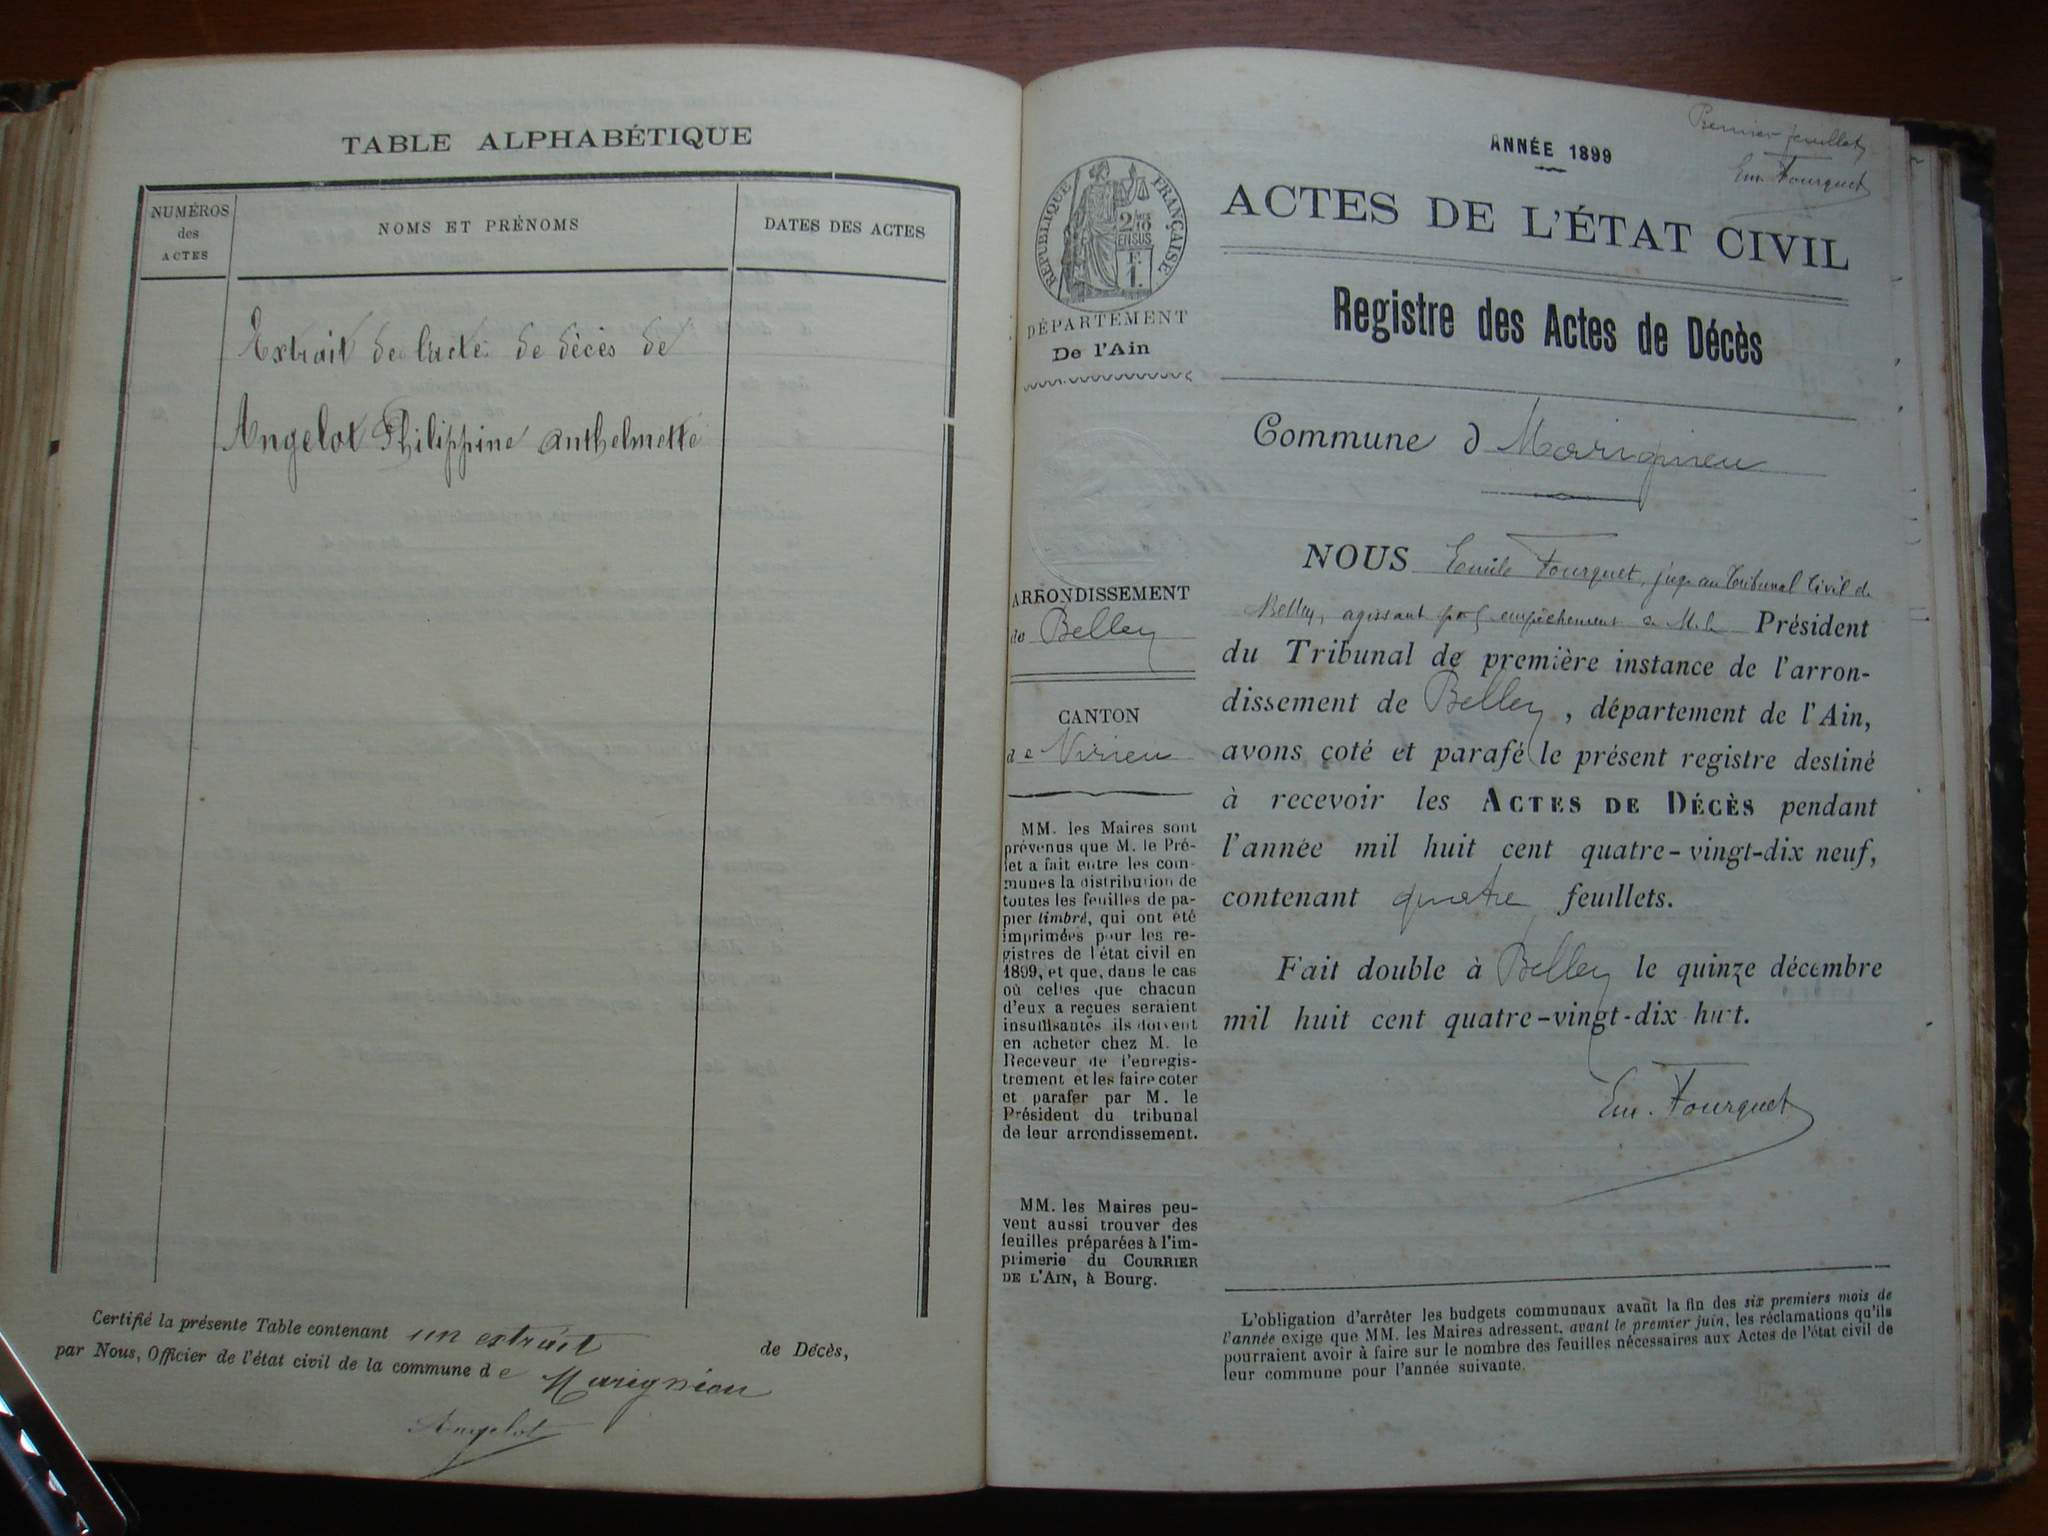 TABLE ALPHABÉTIQUE
NUMÉROS
des
ACTES
NOMS ET PRÉNOMS
DATES DES ACTES
Extrait de l'acte de décès de
Angelot Philippine Anthelmette
Certifié la présente Table contenant un extrait de Décès,
par Nous, Officier de l'état civil de la commune de Marignieu
Angelot
Premier feuillet
Em. Fourquet
ANNÉE 1899
ACTES DE L'ÉTAT CIVIL
RÉPUBLIQUE FRANÇAISE
2/10
EN SUS
F.
1.
DÉPARTEMENT
De l'Ain
Registre des Actes de Décès
Commune d Marignieu
ARRONDISSEMENT
de Belley
CANTON
de Virieu
MM. les Maires sont
prévenus que M. le Pré-
fet a fait entre les com-
munes la distribution de
toutes les feuilles de pa-
pier timbré, qui ont été
imprimées pour les re-
gistres de l'état civil en
1899, et que, dans le cas
où celles que chacun
d'eux a reçues seraient
insuffisantes ils doivent
en acheter chez M. le
Receveur de l'enregis-
trement et les faire coter
et parafer par M. le
Président du tribunal
de leur arrondissement.
MM. les Maires peu-
vent aussi trouver des
feuilles préparées à l'im-
primerie du COURRIER
DE L'AIN, à Bourg.
NOUS Emile Fourquet, juge au Tribunal Civil de
Belley, agissant par empêchement de M. le Président
du Tribunal de première instance de l'arron-
dissement de Belley, département de l'Ain,
avons coté et parafé le présent registre destiné
à recevoir les ACTES DE DÉCÈS pendant
l'année mil huit cent quatre-vingt-dix neuf,
contenant quatre feuillets.
Fait double à Belley le quinze décembre
mil huit cent quatre-vingt-dix huit.
Em. Fourquet
L'obligation d'arrêter les budgets communaux avant la fin des six premiers mois de
l'année exige que MM. les Maires adressent, avant le premier juin, les réclamations qu'ils
pourraient avoir à faire sur le nombre des feuilles nécessaires aux Actes de l'état civil de
leur commune pour l'année suivante.